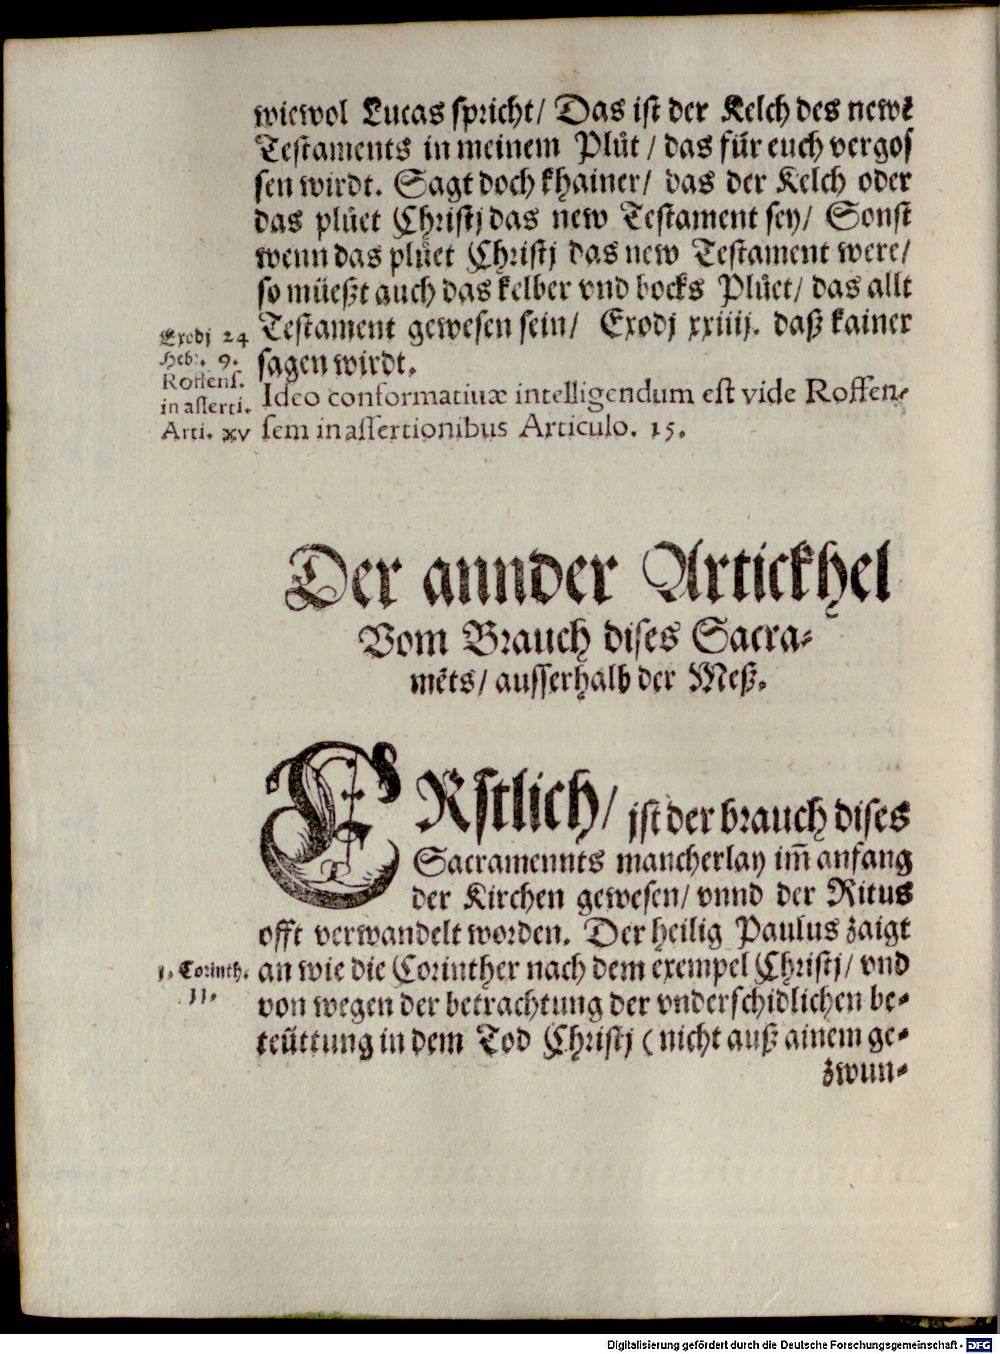 wiewol Lucas spricht/ Das ist der Kelch des newẽ
Testaments in meinem Plůt / das für euch vergos
sen wirdt. Sagt doch khainer/ das der Kelch oder
das plůet Christj das new Testament sey/ Sonst
wenn das plůet Christj das new Testament were/
so müeßt auch das kelber vnd bocks Plůet/ das allt
Testament gewesen sein/ Exodj xxiiij. daß kainer
sagen wirdt.
Exodj 24
Heb. 9.
Roffens.
in asserti.
Arti. xv
Ideo conformatiuæ intelligendum est vide Roffen-
sem in assertionibus Articulo. 15.
Der annder Artickhel
Vom Brauch dises Sacra-
mẽts/ ausserhalb der Meß.
ERstlich/ jst der brauch dises
Sacramennts mancherlay im̃ anfang
der Kirchen gewesen/ vnnd der Ritus
offt verwandelt worden. Der heilig Paulus zaigt
an wie die Corinther nach dem exempel Christj/ vnd
von wegen der betrachtung der vnderschidlichen be-
teüttung in dem Tod Christj ( nicht auß ainem ge-
1. Corinth.
11.
zwun-
Digitalisierung gefördert durch die Deutsche Forschungsgemeinschaft - DFG